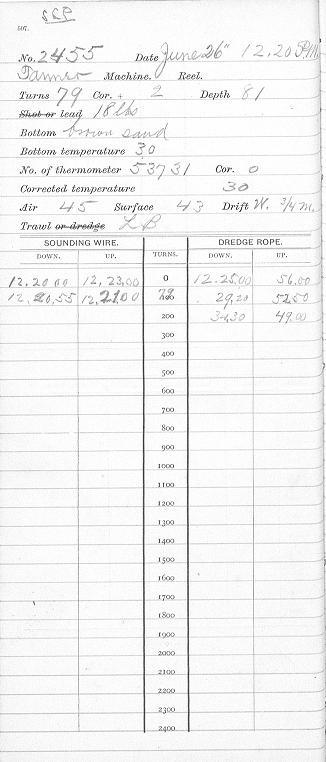 SCP
507.
No. 2455 Date June 26" 12.20 P.M.
Tanner Machine. Reel.
Turns 79 Cor. + 2 Depth 81
Shot or lead 18 lbs
Bottom brown sand
Bottom temperature 30
No. of thermometer 53731 Cor. 0
Corrected temperature 30
Air 45 Surface 43 Drift W. 3/4 m.
Trawl or dredge L B
SOUNDING WIRE. TURNS. DREDGE ROPE.
DOWN. UP. DOWN. UP.
12.20 00 12,23,00 0 12.25,00 56.00
12,20,55 12,21.00 79 100 29,20 52.50
200 34,30 49.00
300
400
500
600
700
800
900
1000
1100
1200
1300
1400
1500
1600
1700
1800
1900
2000
2100
2200
2300
2400